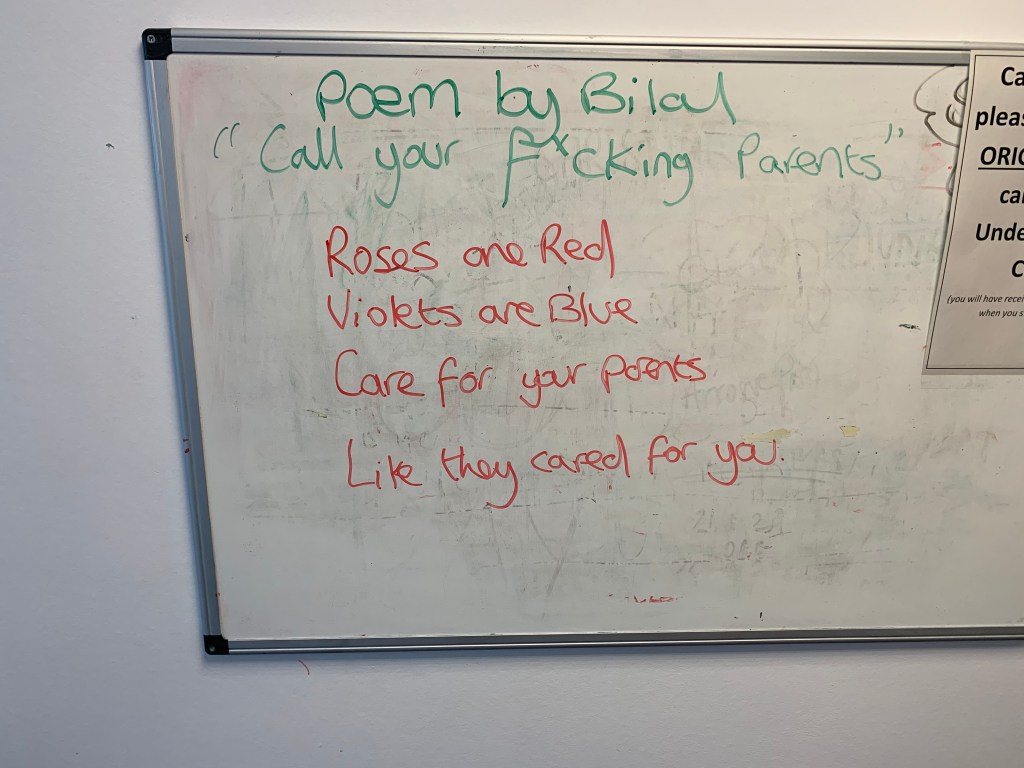 Poem by Bilal
"Call your f*cking Parents"
Roses are Red
Violets are Blue
Care for your parents
Like they cared for you.
Ca
pleas
ORIG
ca
Unde
C
(you will have rece
when you s